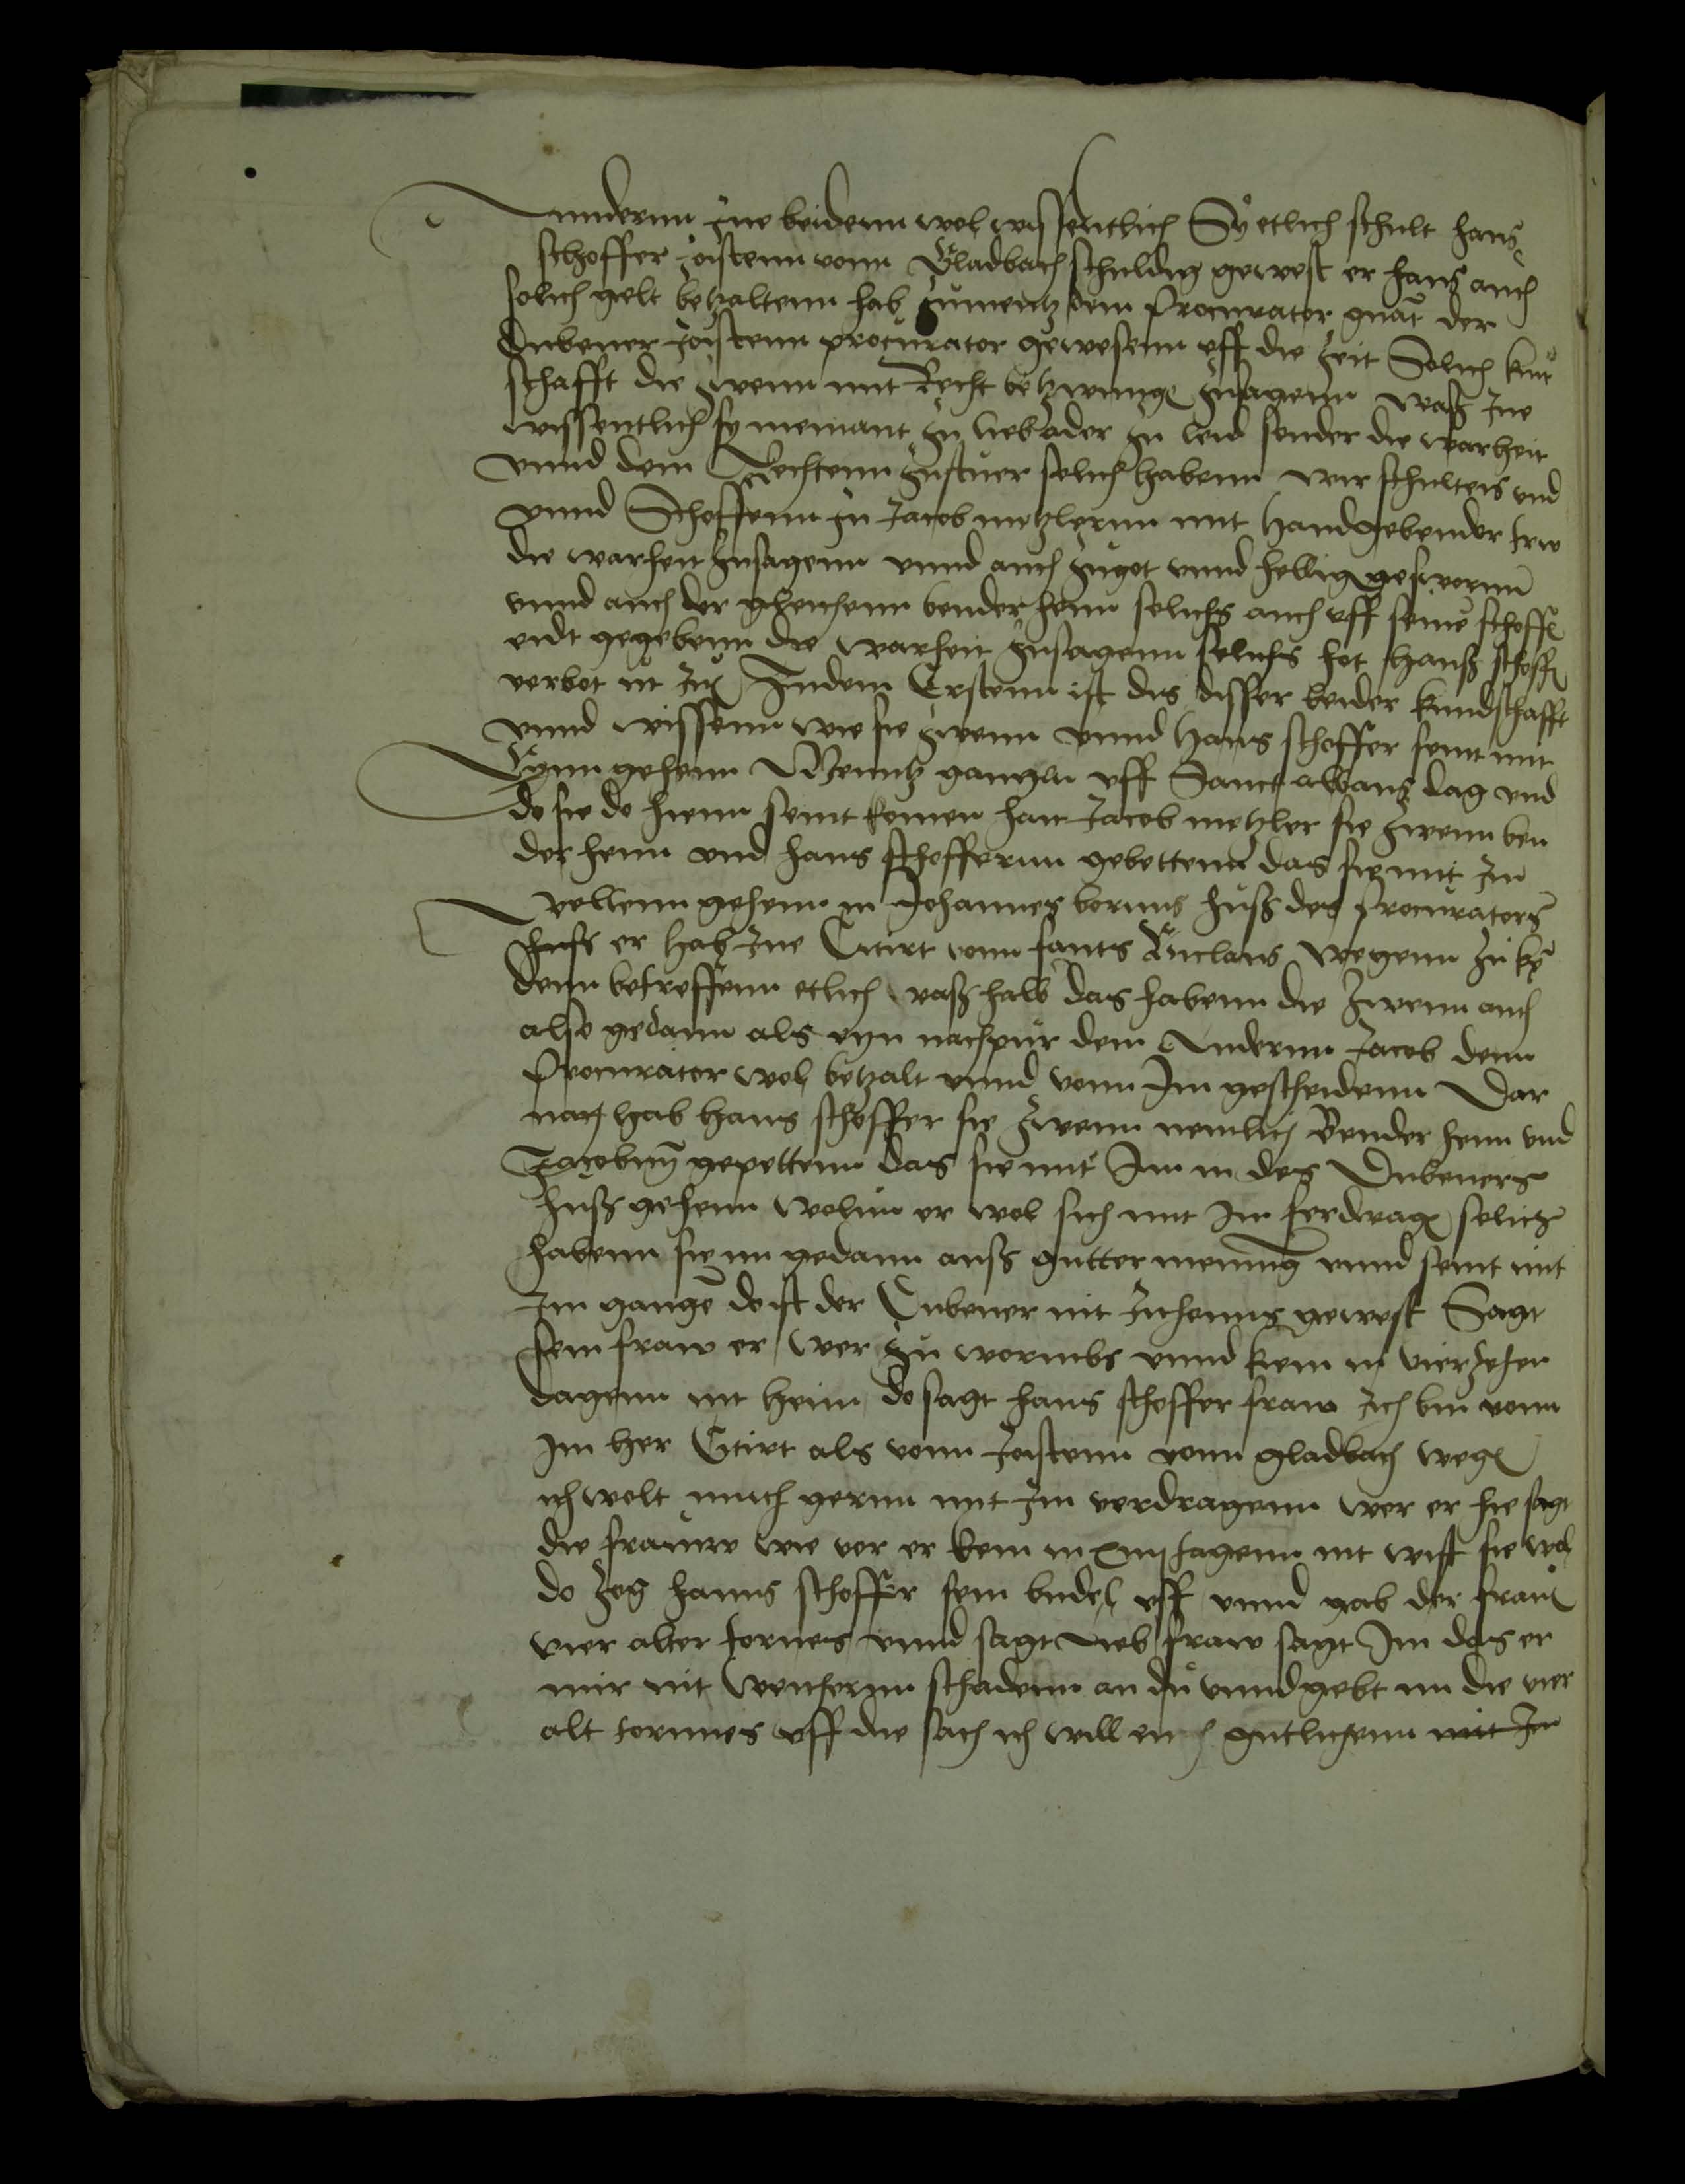 andernn Ine beidenn wol wissentlich Sy etlich schult hans
schoffer Joistenn vonn Gladbach schuldig gewest er hans auch
solich gelt betzaltenn hab zumentz dem procurator gnāt der
Dubener Joistenn procurator gewesenn vff die zeit Solich kunt
schafft die zwenn mit Recht betzwungē zusagenn waß Ine
wissentlich sy niemant zu lieb ader zu leid sonder die warheit
vnnd dem Rechtenn zustuer solichs habenn wir schulteis vnd
vnnd Schoffenn zu Jacob metzlernn mit Handgebender trw
die warheit zusagenn vnnd auch zugot vnnd hellig geswornn
vnnd auch der glichenn bender henn solichs auch vff seinē schoffē
eidt gegebenn die warheit zusagenn solichs hot Hanß schoffē
verbot Indem Erstenn ist dis disser beider kundschafft
vnnd wissenn wie sie zwenn vnnd Hans schoffer seint mit
Eynn gehenn Menntz gangen vff Sanct albans dag vnd
do sie do hienn seint komen hait Jacob metzler sie zwenn ben
der henn vnd hans schoffernn gebettenn das sie mit Im
wollenn gehenn in Johannes bornns huß des procurators
huß er hab Ine Citirt vonn sants Niclaus wegenn zu
denn betreffenn etlich waß halb das habenn die zwenn auch
also gedann als eyn nachpur dem Andernn Jacob denn
procurator wol betzalt vnnd vonn Im gescheidenn Dar
nach hab Hans schoffer sie zwenn nemlich Bender henn vnd
Jacobnn gepettenn das sie mit Im in des Dubeners
huß gehenn wolnn er wol sich mit Im ferdragē solichs
habenn sie nu gedann auß gutter meinung vnnd seint mit
Im gangē do ist der Dubener nit Inheims gewest Sagt
sein fraw er wer zu wormbs vnnd kem in vierzehen
dagenn nit heim do sagt hans schoffer fraw Ich bin vonn
Im her Citirt als vonn Joistenn vonn gladbach wegē
ich wolt mich gernn mit Im verdragenn wer er hie sagt
die frauw wie vor er kem in xiiij tagenn nit wist sie wol
do zog hanns schoffer sein budel vff vnnd gab der frauē
vier alter tornes vnnd sagt lieb fraw sagt Im das er
mir nit weithernn schadenn an du vnnd gebt im die vier
alt tornnes vff die sach ich will mich gutlichenn mit Im